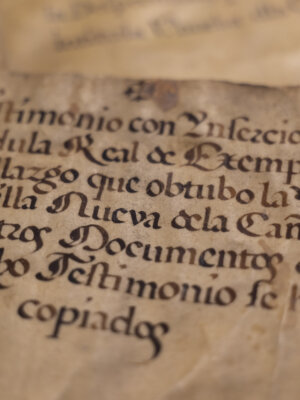 stimonio con Ynsercio
dula Real de Exemp
llazgo que obtubo la
illa Nueva dela Cañ
tros Documentos
Testimonio se
copiados